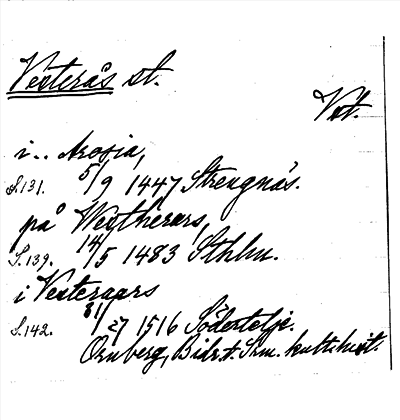 Vesterås st.
Vst.
i.. Arosia,
S.131. 5/9 1447 Strengnäs.
på Westherars,
S.139. 14/5 1483 Sthlm.
i Vesteraars
S.142. 31/27 1516 Södertelje.
Ornberg, Bidr. t. Srm. kulturhist.